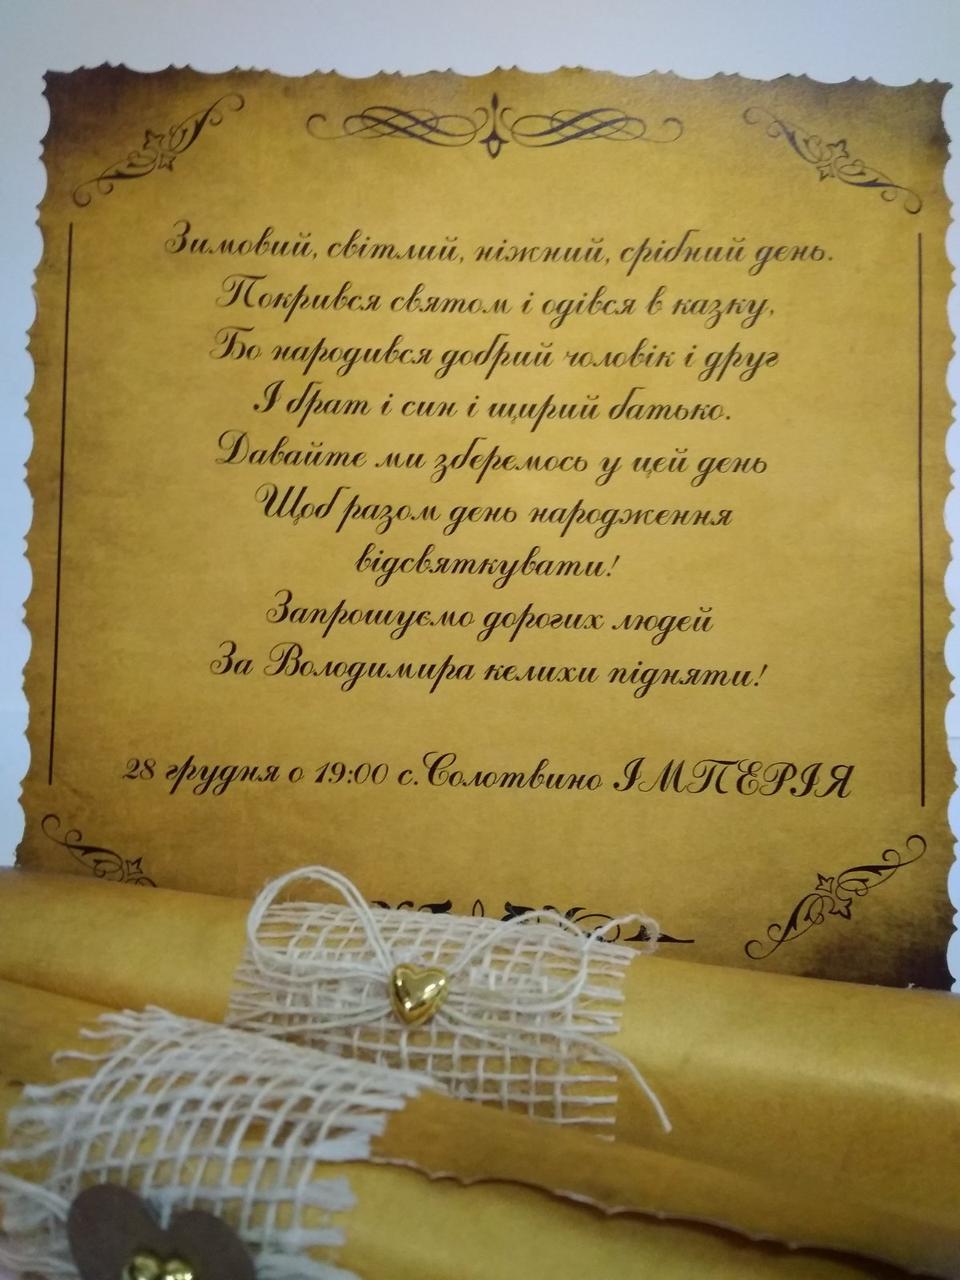 Зимовий, світлий, ніжний, срібний день.
Покрився святом і одівся в казку,
Бо народився добрий чоловік і друг
І брат і син і щирий батько.
Давайте ми зберемось у цей день
Щоб разом день народження
відсвяткувати!
Запрошуємо дорогих людей
За Володимира келихи підняти!
28 грудня о 19:00 с.Солотвино ІМПЕРІЯ